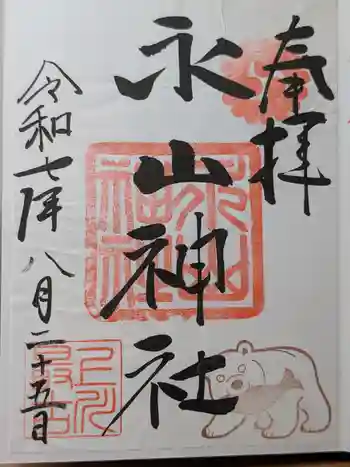 奉拝
永山神社
永山神社
令和七年八月二十五日